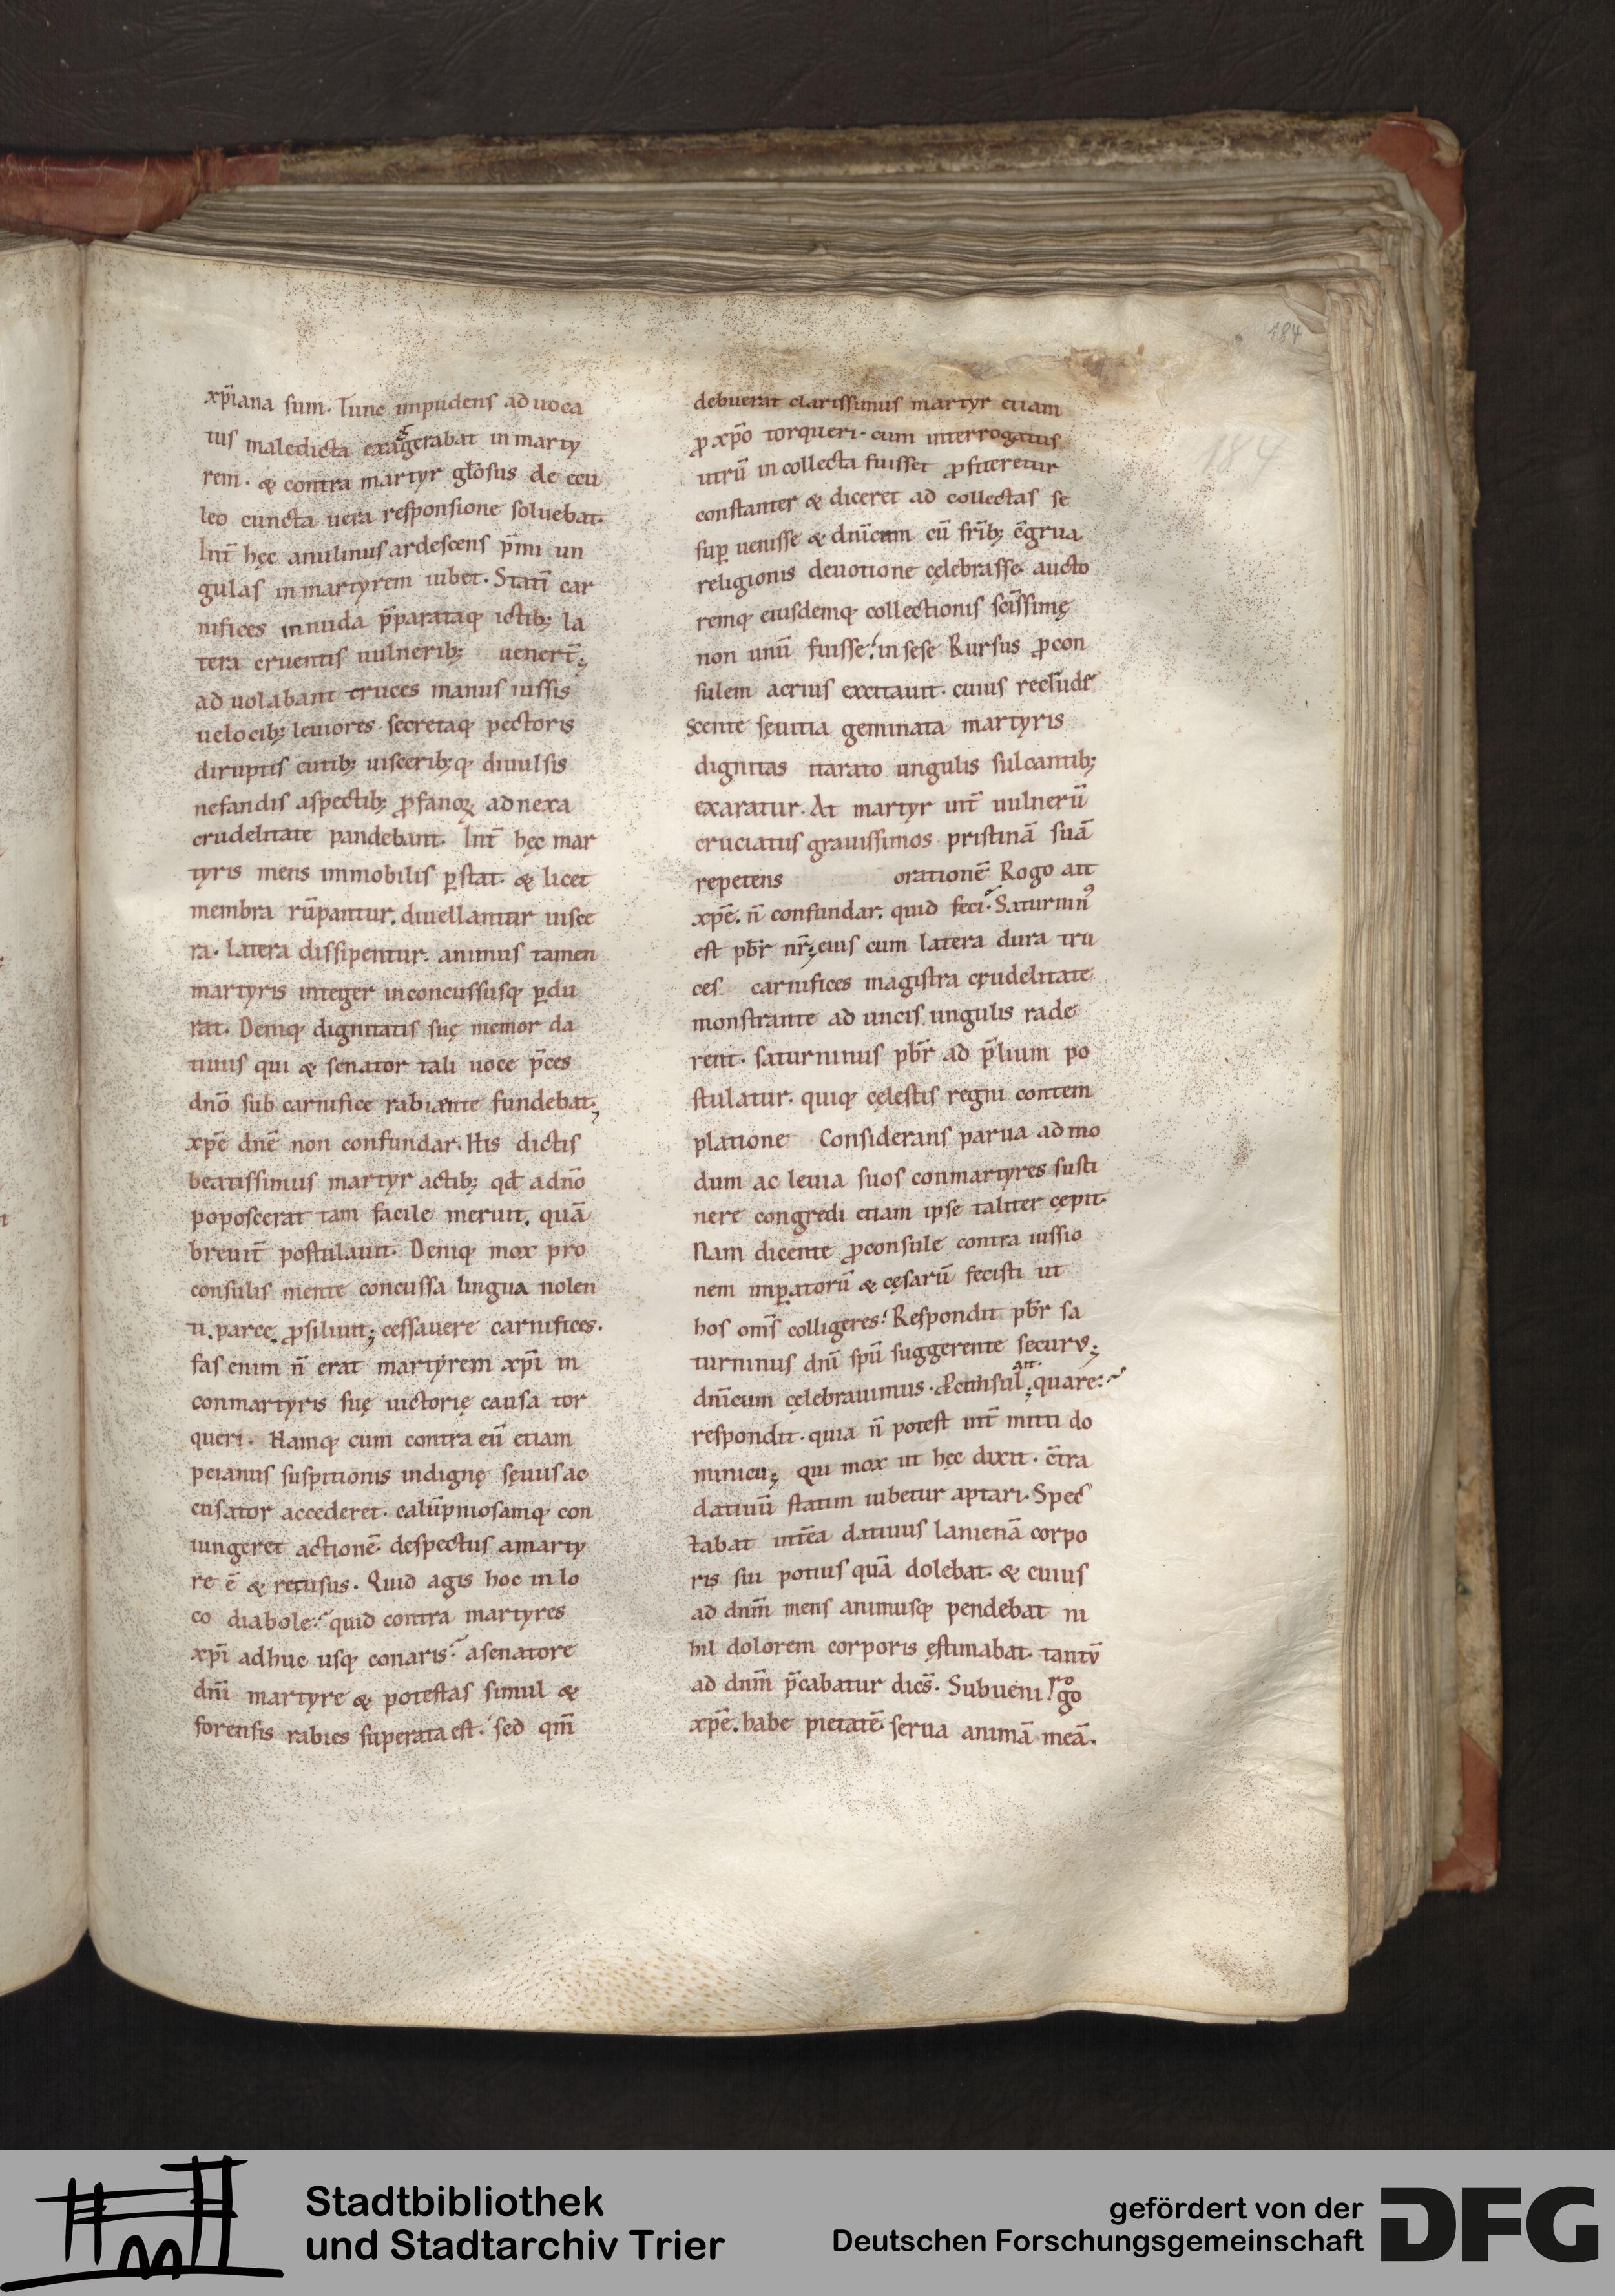 184
184
xp̄iana sum. Tunc impudens aduoca
tus maledicta exaggerabat in marty
rem. & contra martyr gl̄osus de ecu
leo cuncta uera responsione soluebat.
Int̄ hęc anulinus ardescens p̄mi un
gulas in martyrem iubet. Statī car
nifices in nuda p̄parataq; ictib; la
tera cruentis uulnerib; uenert̄;
aduolabant truces manus iussis
uelocib; leuiores secretaq; pectoris
diruptis cutib; uiscerib;q; diuulsis
nefandis aspectib; ꝓfanoꝝ adnexa
crudelitate pandebant. Int̄ hęc mar
tyris mens immobilis ꝑstat. & licet
membra rūpantur. diuellantur uisce
ra. latera dissipentur. animus tamen
martyris integer inconcussusq; ꝑdu
rat. Deniq; dignitatis suę memor da
tiuus qui & senator tali uoce p̄ces
dn̄o sub carnifice rabiante fundebat;
xp̄e dn̄e non confundar. His dictis
beatissimus martyr actib; qđ a dn̄o
poposcerat tam facile meruit. quā
breuit̄ postulauit. Deniq; mox pro
consulis mente concussa lingua nolen
ti. parce. ꝓsiluit; cessauere carnifices.
fas enim n̄ erat martyrem xp̄i in
conmartyris suę uictorię causa tor
queri. Namq; cum contra eū etiam
peianus suspitionis indignę sęuus ac
cusator accederet. calūpniosamq; con
iungeret actionē. despectus a marty
re ē & retusus. Quid agis hoc in lo
co diabole? quid contra martyres
xp̄i adhuc usq; conaris? a senatore
dn̄i martyre & potestas simul &
forensis rabies superata est. sed qm̄
debuerat clarissimus martyr etiam
ꝓ xp̄o torqueri. cum interrogatus
utrū in collecta fuisset ꝓfiteretur
constanter & diceret ad collectas se
suꝑ uenisse & dn̄icum cū fr̄ib; c̄grua
religionis deuotione cęlebrasse. aucto
remq; eiusdemq; collectionis sc̄issimę
non unū fuisse. in sese Rursus ꝓcon
sulem acrius excitauit. cuius recrude
scente sęuitia geminata martyris
dignitas itarato ungulis sulcantib;
exaratur. At martyr int̄ uulnerū
cruciatus grauissimos pristinā suā
repetens orationē. Rogo ait
xp̄e. n̄ confundar. quid feci? Saturnin᾿
est pbr̄ nr̄; eius cum latera dura tru
ces carnifices magistra crudelitate
monstrante aduncis ungulis rade
rent. saturninus pbr̄ ad p̄lium po
stulatur. quiq; cęlestis regni contem
platione Considerans parua admo
dum ac leuia suos conmartyres susti
nere congredi etiam ipse taliter cępit.
Nam dicente ꝓconsule contra iussio
nem imꝑatorū & cęsarū fecisti ut
hos om̄s colligeres? Respondit pbr̄ sa
turninus dn̄i spū suggerente securꝰ;
dn̄icum cęlebrauimus. Proconsul ait; quare?
respondit. quia n̄ potest int̄ mitti do
minicū; Qui mox ut hęc dixit. c̄tra
datiuū statim iubetur aptari. Spec
tabat int̄ea datiuus lanienā corpo
ris sui potius quā dolebat. & cuius
ad dnm̄ mens animusq; pendebat ni
hil dolorem corporis ęstimabat. tantū
ad dnm̄ p̄cabatur dicēs. Subueni rogo
xp̄e. habe pietatē. serua animā meā.
Stadtbibliothek
und Stadtarchiv Trier
gefördert von der
Deutschen Forschungsgemeinschaft
DFG